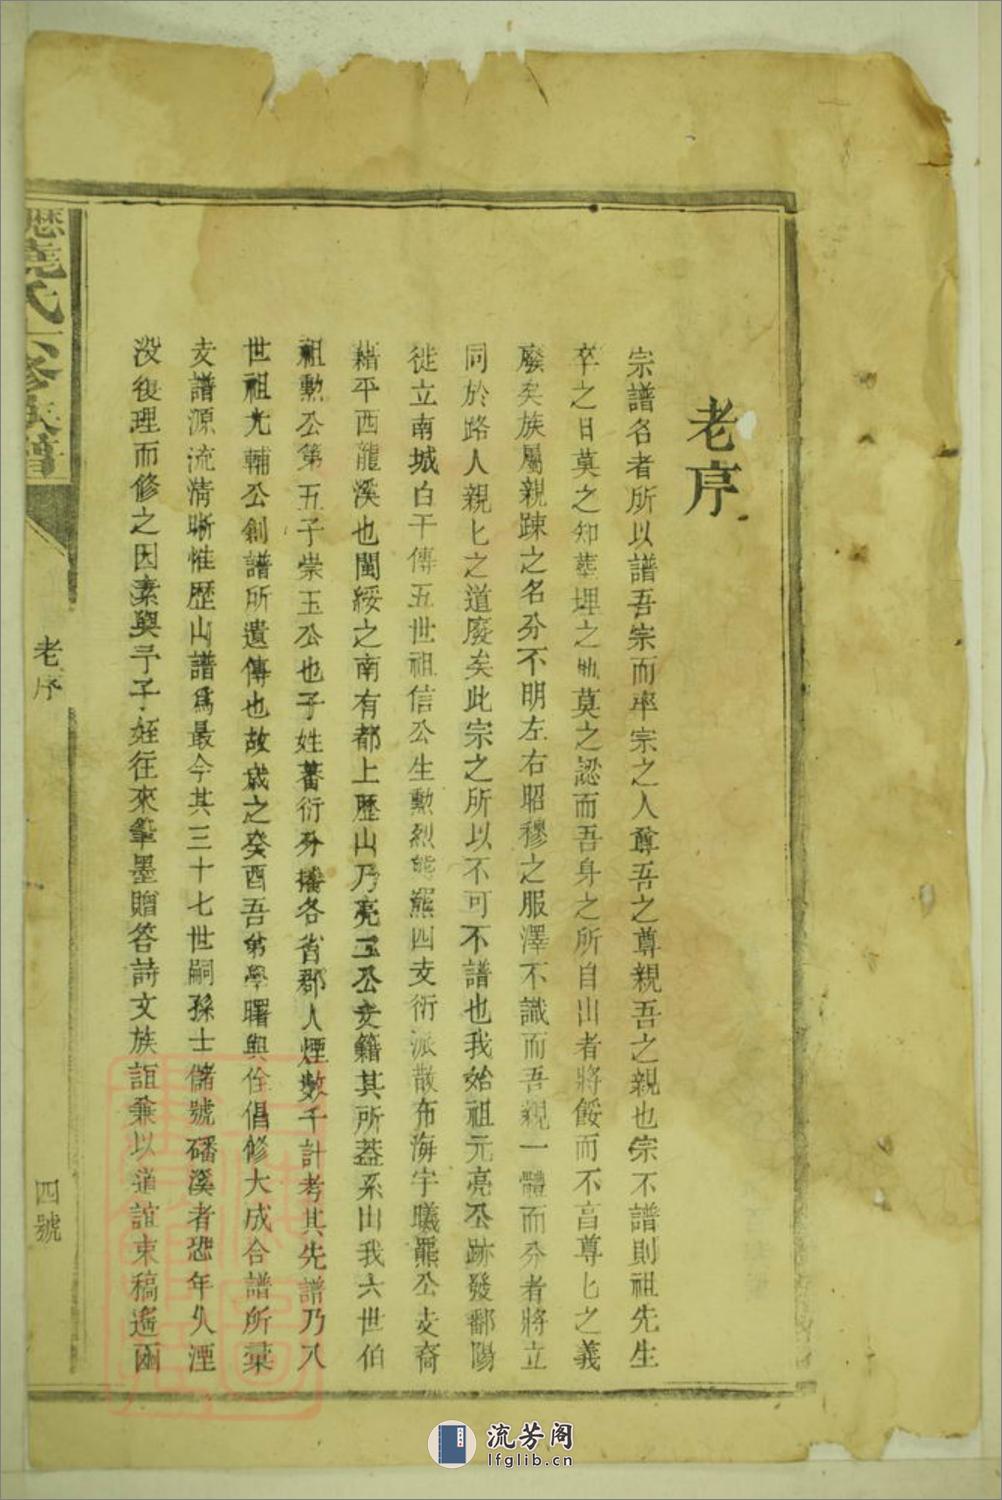 老序
宗譜名者所以譜吾宗而率宗之人尊吾之尊親吾之親也宗不譜則祖先生
卒之日莫之知葬埋之地莫之認而吾身之所自出者將餒而不亯尊匕之義
廢矣族屬親踈之名分不明左右昭穆之服澤不識而吾親一體而分者將立
同於路人親匕之道廢矣此宗之所以不可不譜也我始祖元亮公跡發鄱陽
徙立南城白干傳五世祖信公生勲烈熊羆四支衍派散布海宇曦羆公支裔
藉平西龍溪也閩綏之南有都上歷山乃亮玉公支籍其所葢系出我六世伯
祖勲公第五子崇玉公也子姓蕃衍分播各省郡人煙數千計考其先譜乃八
世祖光輔公創譜所遺傳也故歲之癸酉吾弟學曙與佺倡修大成合譜所彙
支譜源流淸晰惟歷山譜爲最今其三十七世嗣孫士儲號磻溪者恐年久湮
没復理而修之因素與予子姪往來筆墨贈答詩文族誼兼以道誼東稿遙兩
歷堯氏六修族譜
老序
四號
流芳阁
lfglib.cn